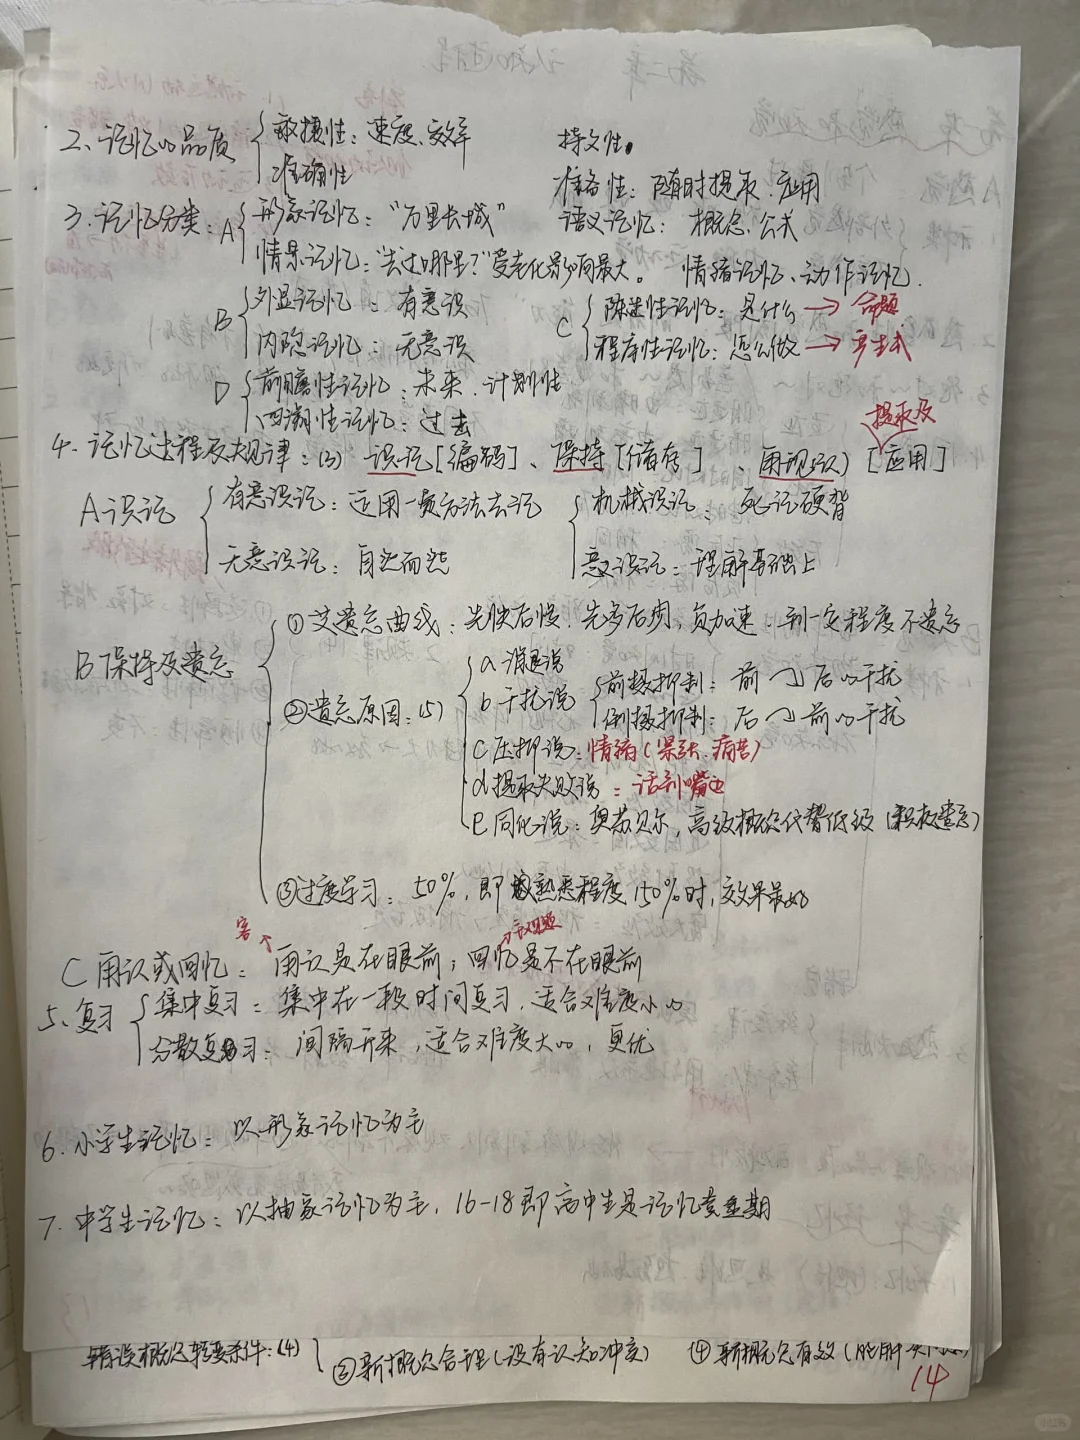 2、记忆的品质 敏捷性：速度、效率 持久性。
准确性 准备性：随时提取、应用
3. 记忆分类：A 形象记忆：“万里长城” 语义记忆：概念、公式
情景记忆：“去过哪里？”受老化影响最大。 情绪记忆、动作记忆.
B 外显记忆：有意识 C 陈述性记忆：是什么 → 命题
内隐记忆：无意识 程序性记忆：怎么做 → 产生式
D 前瞻性记忆：未来、计划性
回溯性记忆：过去
提取及
4. 记忆过程及规律：(3) 识记[编码]、保持[储存]、再现(认)[应用]
A 识记 有意识记：运用一定方法去记 机械识记：死记硬背
无意识记：自然而然 意义识记：理解基础上
①艾遗忘曲线：先快后慢、先多后少，负加速、到一定程度不遗忘
B 保持及遗忘 a 消退说
②遗忘原因：(5) b 干扰说 前摄抑制：前 → 后的干扰
倒摄抑制：后 → 前的干扰
C 压抑说：情绪(紧张、痛苦)
d 提取失败说：话到嘴边
e 同化说：奥苏贝尔，高级概念代替低级(积极遗忘)
③过度学习：50%，即熟悉程度150%时，效果最好
C 再认或回忆：再认是在眼前；回忆是不在眼前
5、复习 集中复习：集中在一段时间复习，适合难度小的
分散复习：间隔开来，适合难度大的，更优
6. 小学生记忆：以形象记忆为主
7. 中学生记忆：以抽象记忆为主，16-18即高中生是记忆黄金期
错误概念转变条件：(4) ③新概念合理(没有认知冲突) ④新概念有效
14